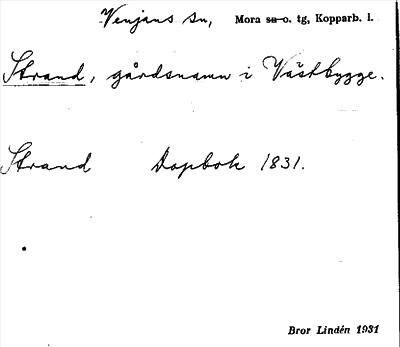 Venjans sn, Mora sn o. tg, Kopparb. l.
Strand, gårdsnamn i Västbygge.
Strand Dopbok 1831.
Bror Lindén 1931